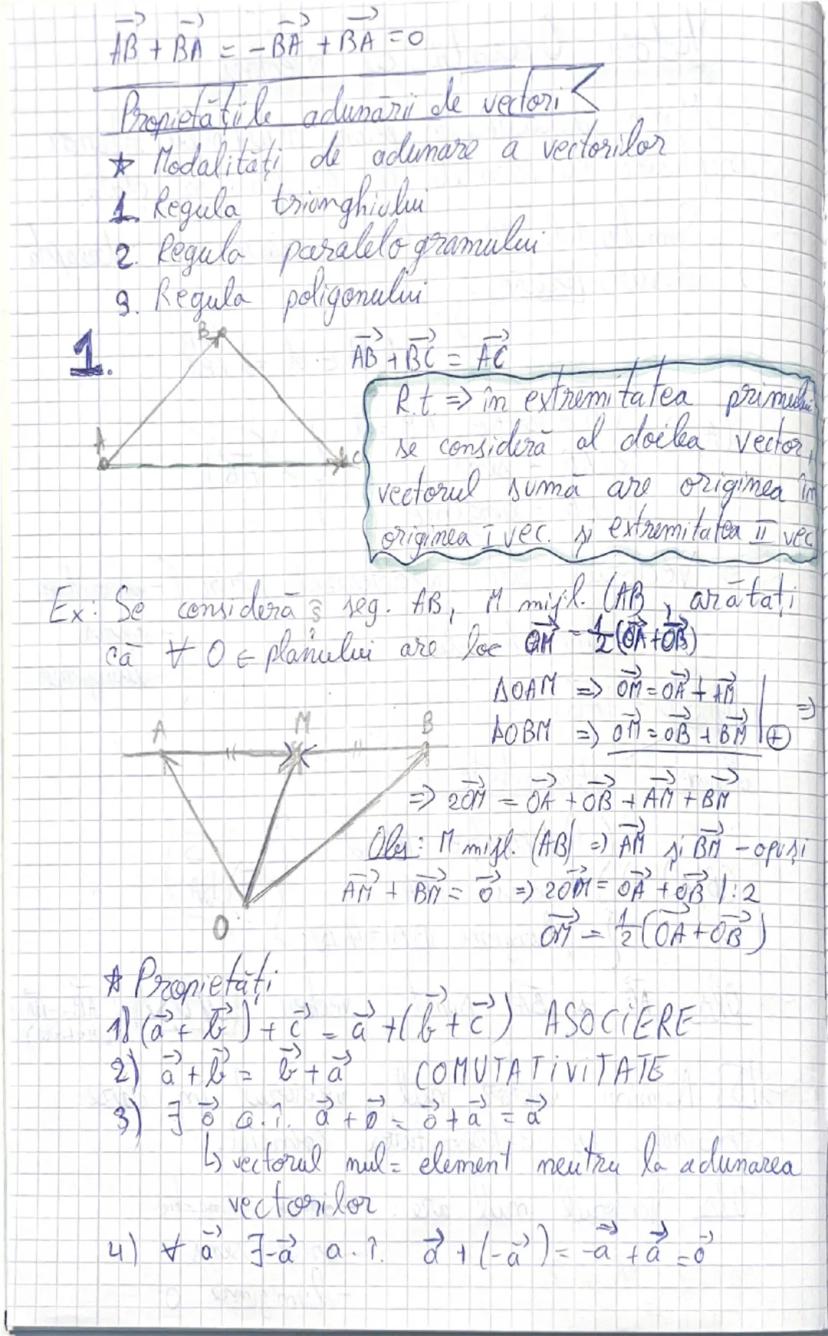 AB⃗ + BA⃗ = -BA⃗ + BA⃗ = 0
Proprietățiile adunării de vectori
★ Modalități de adunare a vectorilor
1. Regula triunghiului
2. Regula paralelogramului
3. Regula poligonului
1.
B
A
C
AB⃗ + BC⃗ = AC⃗
R.t. => în extremitatea primului
se consideră al doilea vector,
vectorul sumă are originea în
originea I vec. și extremitatea II vec
Ex: Se consideră seg. AB, M mijl. (AB, arătați
că ∀ O ∈ planului are loc OM⃗ = 1/2 (OA⃗ + OB⃗)
ΔOAM => OM⃗ = OA⃗ + AM⃗
ΔOBM => OM⃗ = OB⃗ + BM⃗ | ⊕ =>
A M B
O
=> 2OM⃗ = OA⃗ + OB⃗ + AM⃗ + BM⃗
Obs: M mijl. (AB) => AM⃗ și BM⃗ - opuși
AM⃗ + BM⃗ = 0⃗ => 2OM⃗ = OA⃗ + OB⃗ |:2
OM⃗ = 1/2 (OA⃗ + OB⃗)
★ Proprietăți
1) (a⃗ + b⃗) + c⃗ = a⃗ + (b⃗ + c⃗) ASOCIERE
2) a⃗ + b⃗ = b⃗ + a⃗ COMUTATIVITATE
3) ∃ 0⃗ a.î. a⃗ + 0⃗ = 0⃗ + a⃗ = a⃗
↳ vectorul nul = element neutru la adunarea
vectorilor
4) ∀ a⃗ ∃ -a⃗ a.î. a⃗ + (-a⃗) = -a⃗ + a⃗ = 0⃗